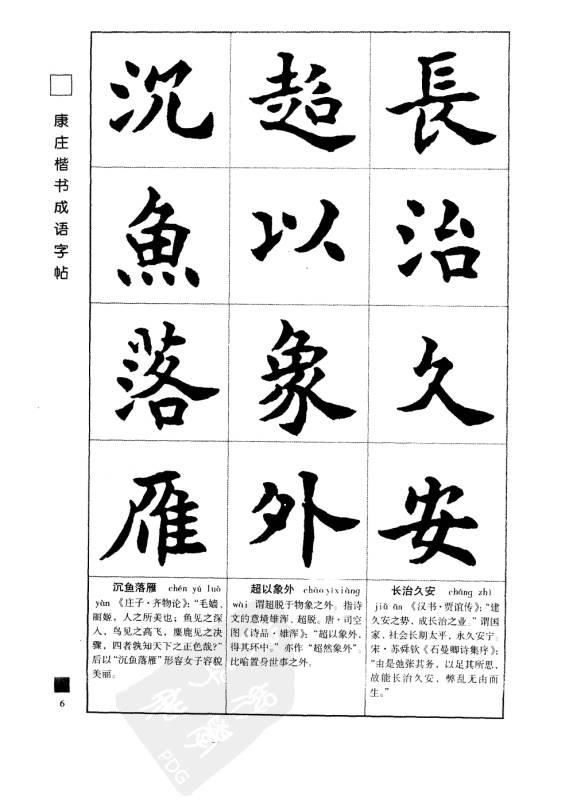 康庄楷书成语字帖
長治久安
超以象外
沉魚落雁
沉鱼落雁 chén yú luò
yàn 《庄子·齐物论》：“毛嫱、
丽姬，人之所美也；鱼见之深
入，鸟见之高飞，麋鹿见之决
骤，四者孰知天下之正色哉？”
后以“沉鱼落雁”形容女子容貌
美丽。
超以象外 chāo yǐ xiàng
wài 谓超脱于物象之外。指诗
文的意境雄浑、超脱。唐·司空
图《诗品·雄浑》：“超以象外，
得其环中。”亦作“超然象外”。
比喻置身世事之外。
长治久安 cháng zhì
jiǔ ān 《汉书·贾谊传》：“建
久安之势，成长治之业。”谓国
家、社会长期太平，永久安宁。
宋·苏舜钦《石曼卿诗集序》：
“由是弛张其务，以足其所思，
故能长治久安，弊乱无由而
生。”
6
PDG